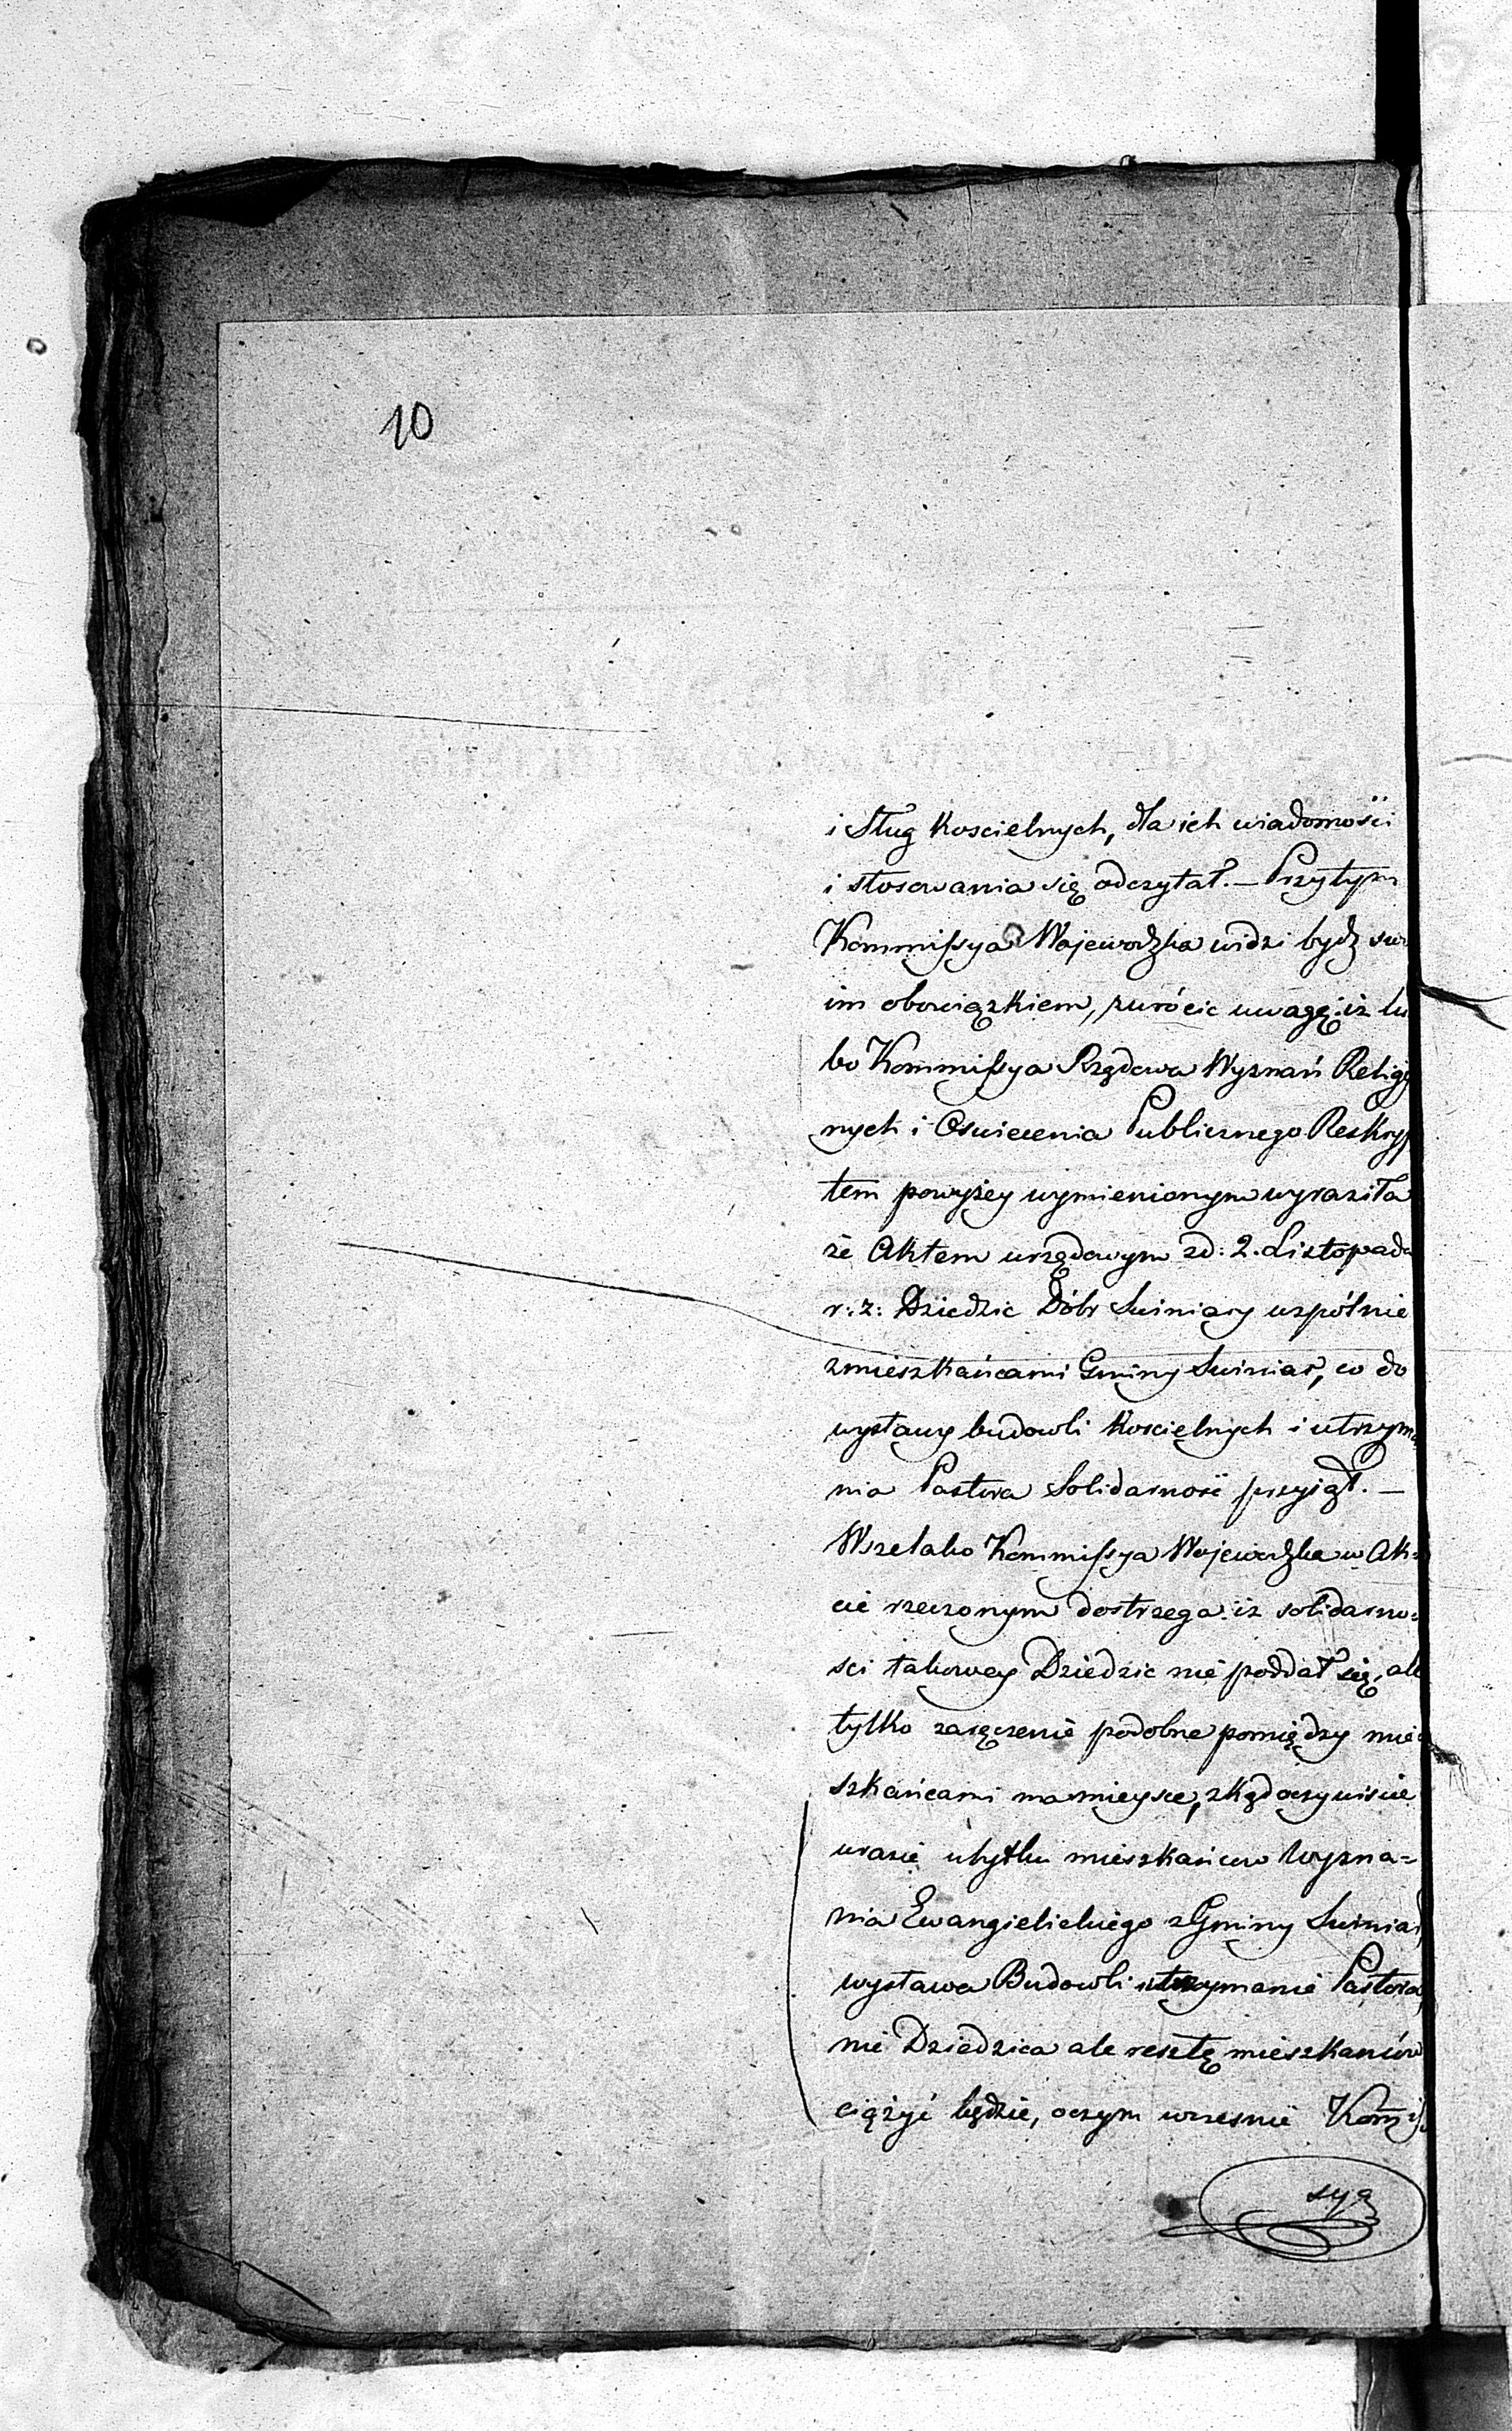 10
i Sług Koscielnych, dla ich wiadomości
i stosowania się odczytał. — Przytym
Kommissya Wojewodzka widzi bydź swo
im obowiązkiem, zwrócic uwagę: iż lu
bo Kommissya Rządowa Wyznań Religij
nych i Oswiecenia Publicznego Reskryp
tem powyżey wymienionym wyraziła
że Aktem urzędowym zd: 2. Listopada
r: z: Dziedzic Dóbr Swiniary wspólnie
zmieszkańcami Gminy Swiniar, co do
wystawy budowli Kościelnych i utrzyma
nia Pastora Solidarność przyjął. —
Wszelako Kommissya Wojewodzka w Ak=
cie rzeczonym dostrzega: iż solidarno=
sci takowey Dziedzic nie poddał się, ale
tylko zaręczenie podobne pomiędzy mie
szkańcami ma mieysce, zkąd oczywiscie
wrazie ubytku mieszkańców Wyzna=
nia Ewangielickiego z Gminy Swiniar,
wystawa Budowli utrzymanie Pastora,
nie Dziedzica ale resztę mieszkańców
ciążyć będzie, oczym wczesnie Kom̄is
sya